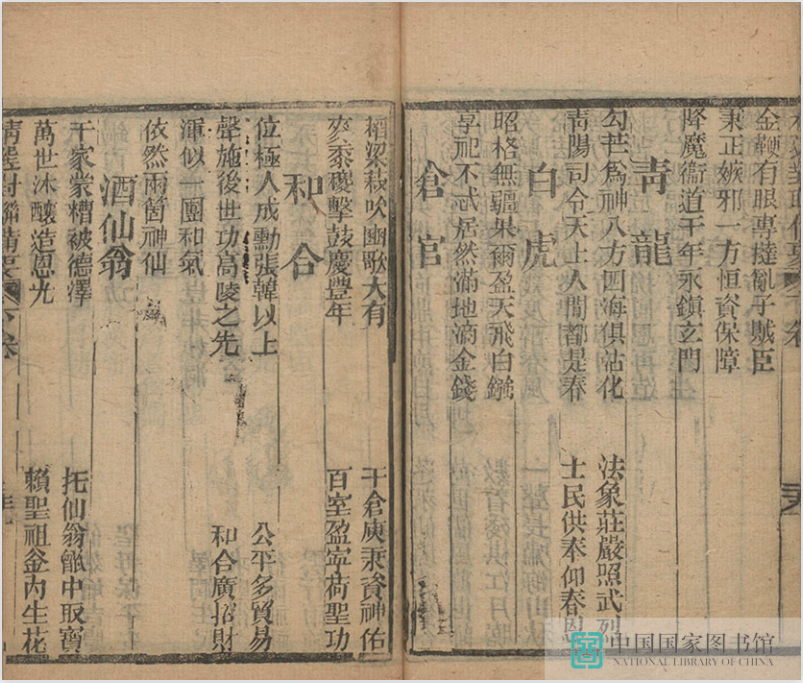 金鞭有眼專撻亂子賊臣
秉正嫉邪一方恒資保障
降魔衞道千年永鎮玄門
青龍
勾芒爲神八方四海俱沾化
法象莊嚴照武烈
青陽司令天上人間都是春
士民供奉仰春恩
白虎
昭格無疆果爾盈天飛白鏹
享祀不忒居然滿地滴金錢
倉官
稻梁菽吹豳歌大有
千倉庾秉資神佑
麥黍稷擊鼓慶豐年
百室盈寧荷聖功
和合
位極人成勳張韓以上
公平多貿易
聲施後世功高陵之先
和合廣招財
渾似一團和氣
依然兩箇神仙
酒仙翁
千家蒙糟被德澤
托仙翁甑中取寶
萬世沐釀造恩光
賴聖祖釜內生花
精選對聯備要
下卷
中国国家图书馆
NATIONAL LIBRARY OF CHINA